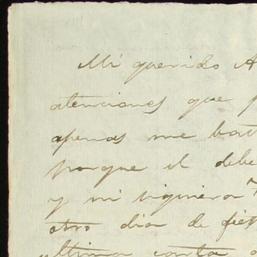 Mi querido A
atenciones que p
apenas me bast
porque el debe
y ni siquiera
otro dia de fie
ultima carta